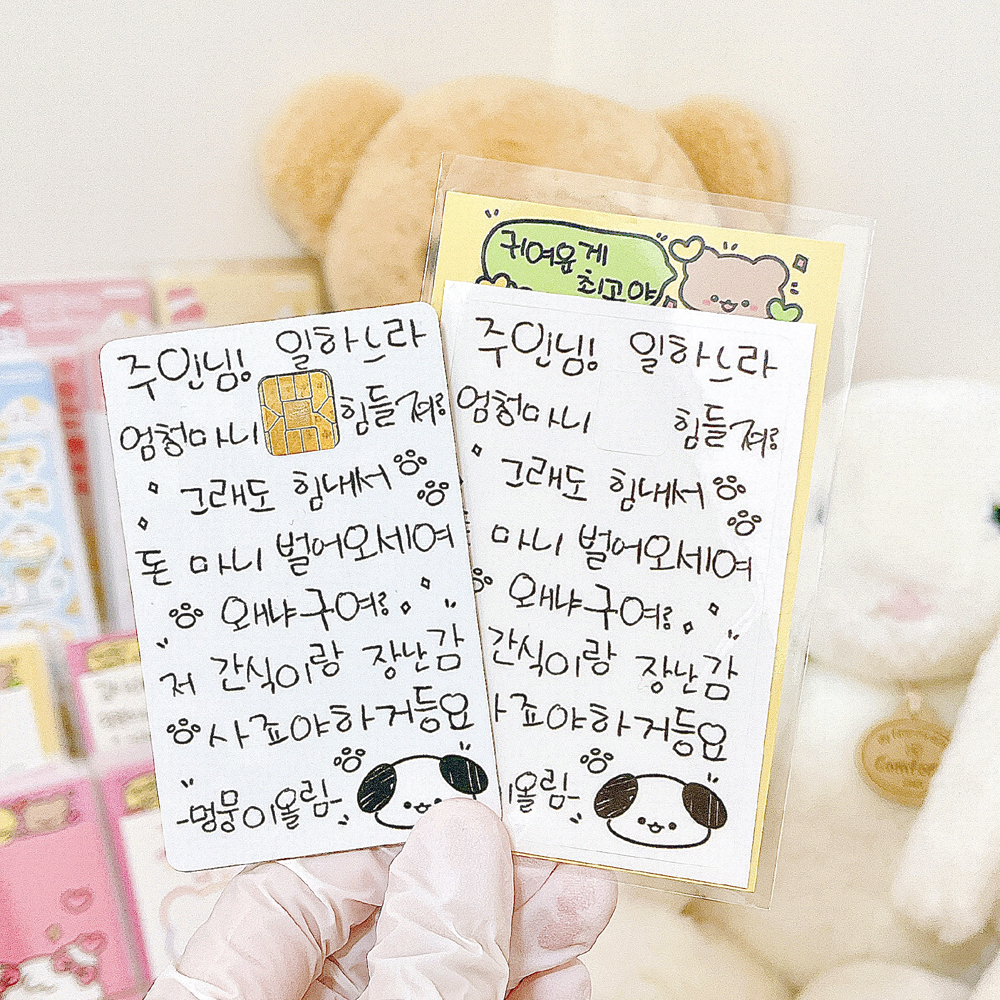 주인님! 일하느라
엄청마니 힘들져?
그래도 힘내서
돈 마니 벌어오세여
왜냐구여?
저 간식이랑 장난감
사죠야하거등요
-멍뭉이올림-
귀여운게
최고야
주인님! 일하느라
엄청마니 힘들져?
그래도 힘내서
마니 벌어오세여
왜냐구여?
간식이랑 장난감
사죠야하거등요
이올림-
Comfort